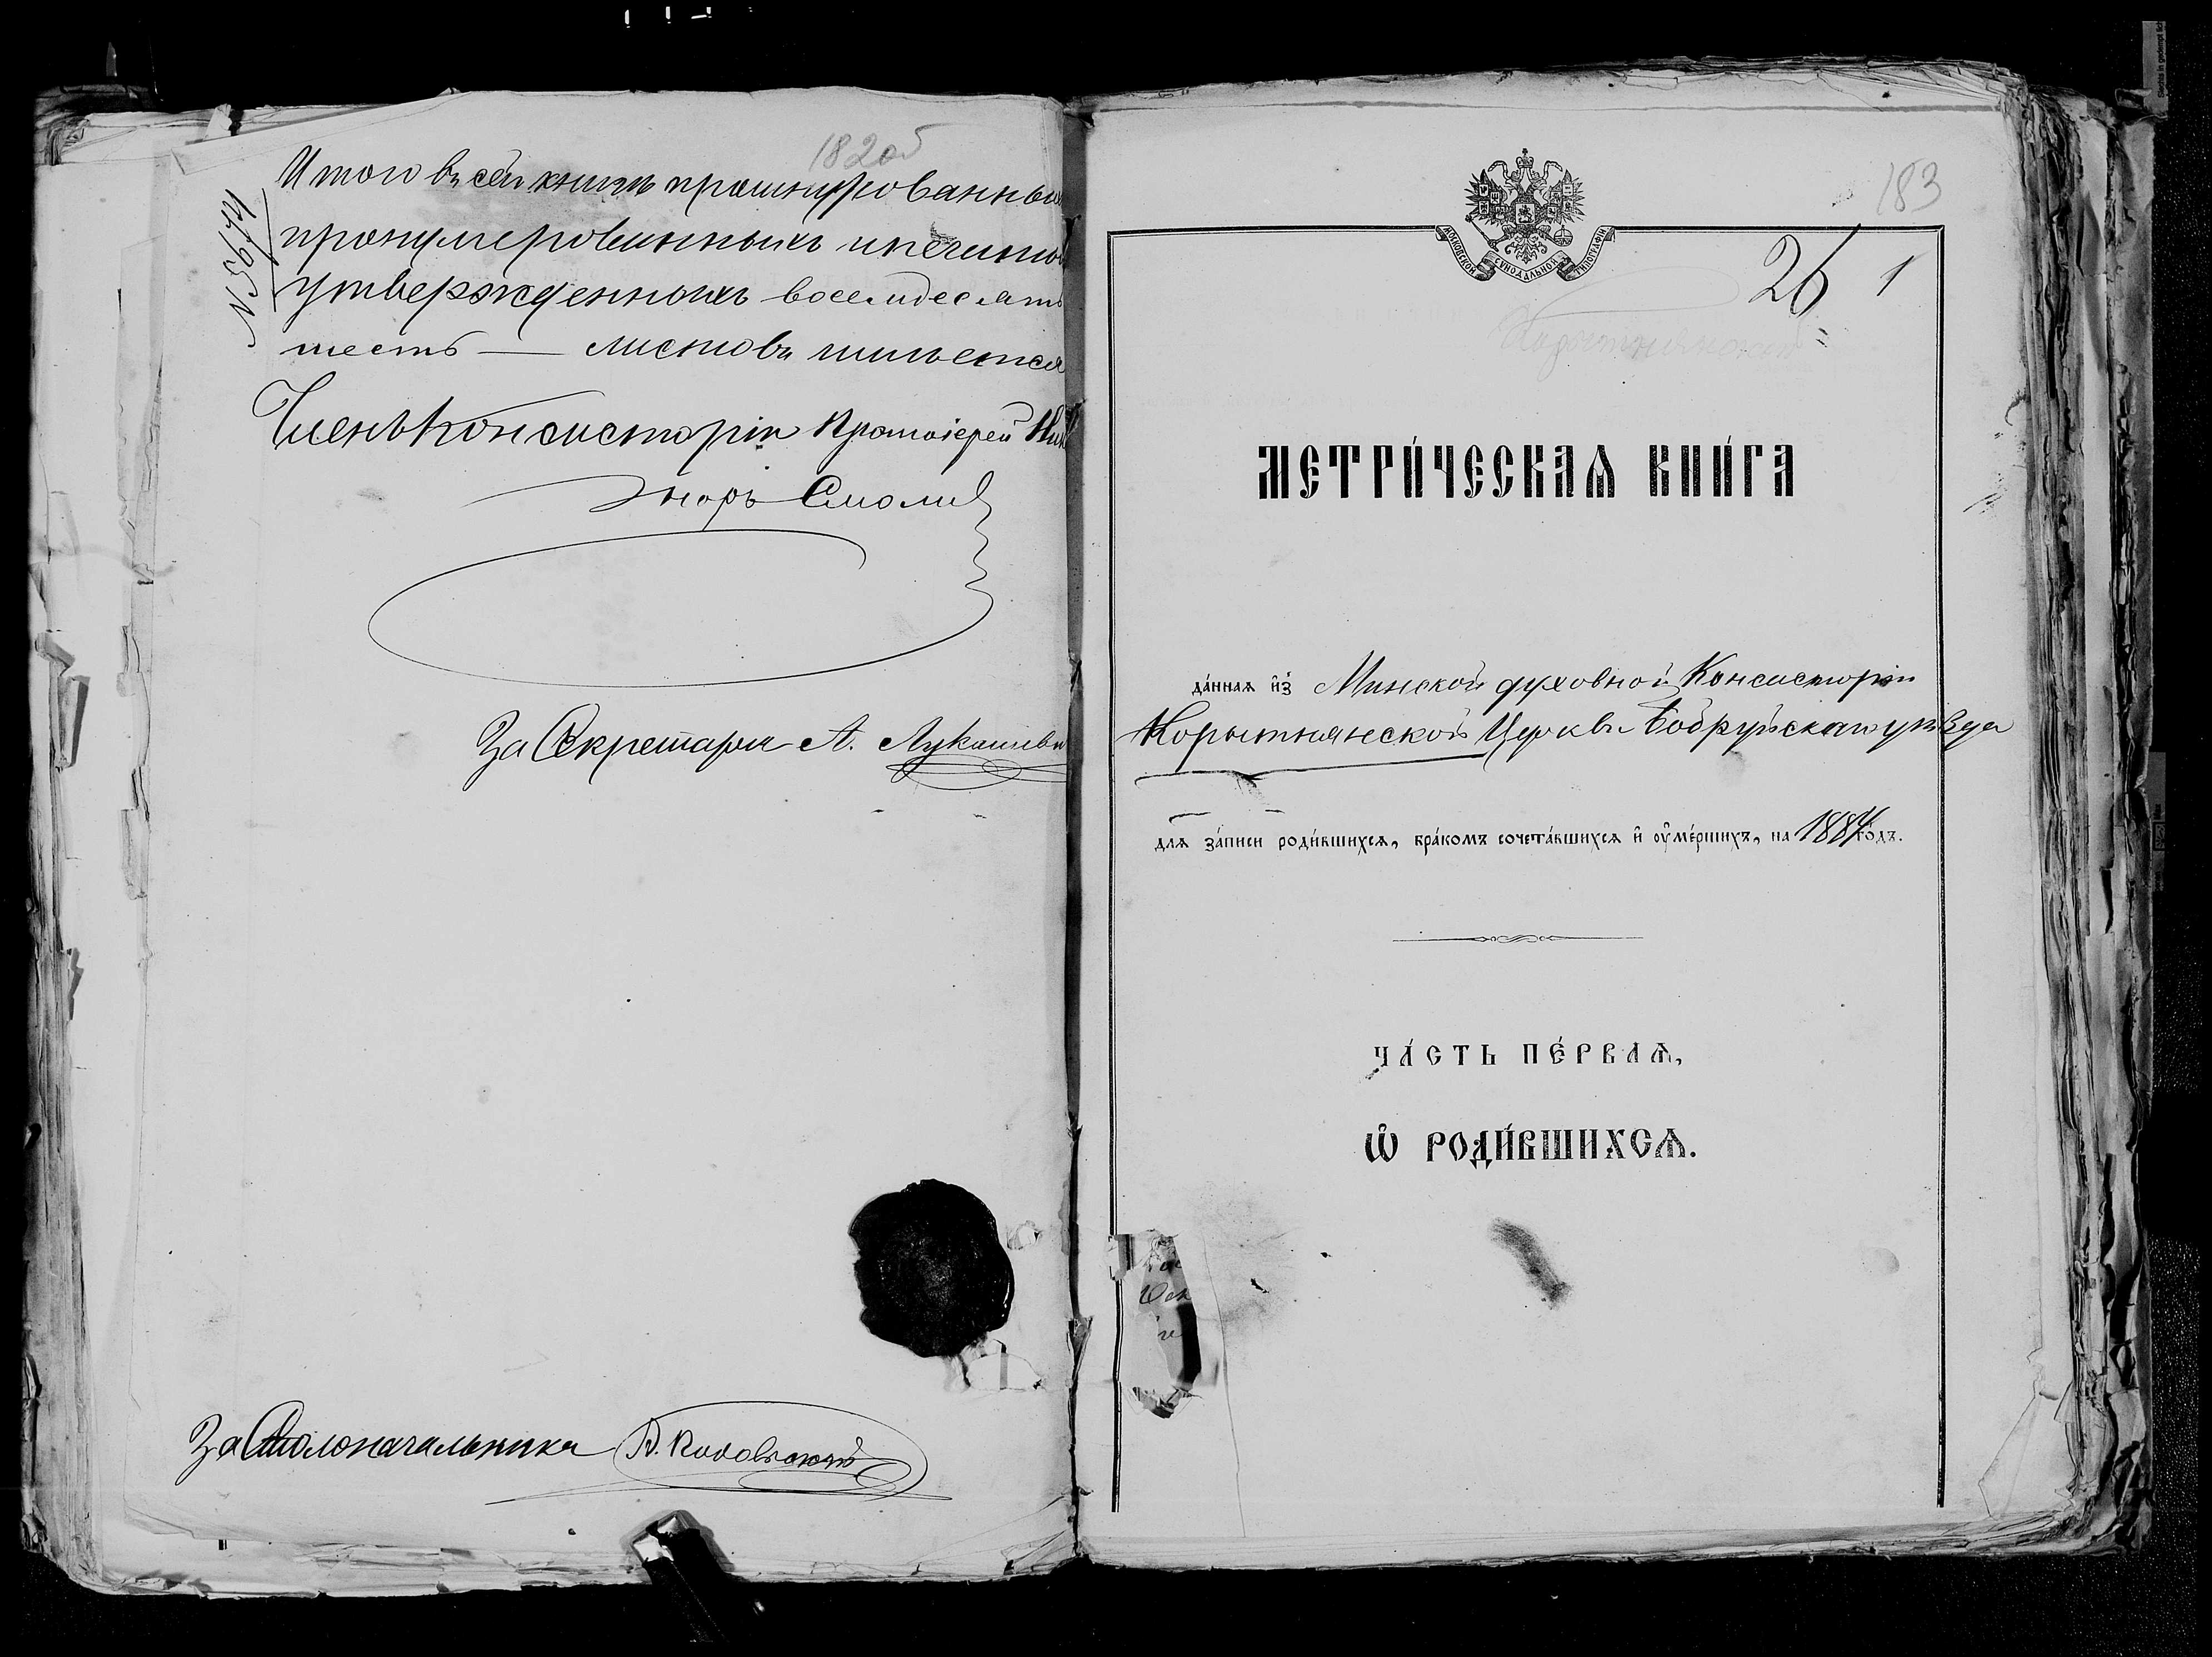 182об
Итого въ сей книгѣ прошнурованных
пронумерованныхъ и печатью
утвержденныхъ восемдесятъ
шесть — листовъ имѣется
№ 5674
Членъ Консисторіи Протоіерей
Смолич
За Секретаря А. Лукашеви
За Столоначальника
183
26 1
МОСКОВСКОЙ СѴНОДАЛЬНОЙ ТИПОГРАФІИ
МЕТРИ́ЧЕСКАѦ КНИ́ГА
да́ннаѧ и҆з̾ Минской духовной Консисторіи
Корытнянской Церкви Бобруйскаго уѣзда
для за́писи роди́вшихсѧ, бра́комъ сочета́вшихсѧ и҆ ᲂу҆ме́ршихъ, на 1884 го́дъ.
ЧА́СТЬ ПЕ́РВАѦ,
Ѽ РОДИ́ВШИХСѦ.